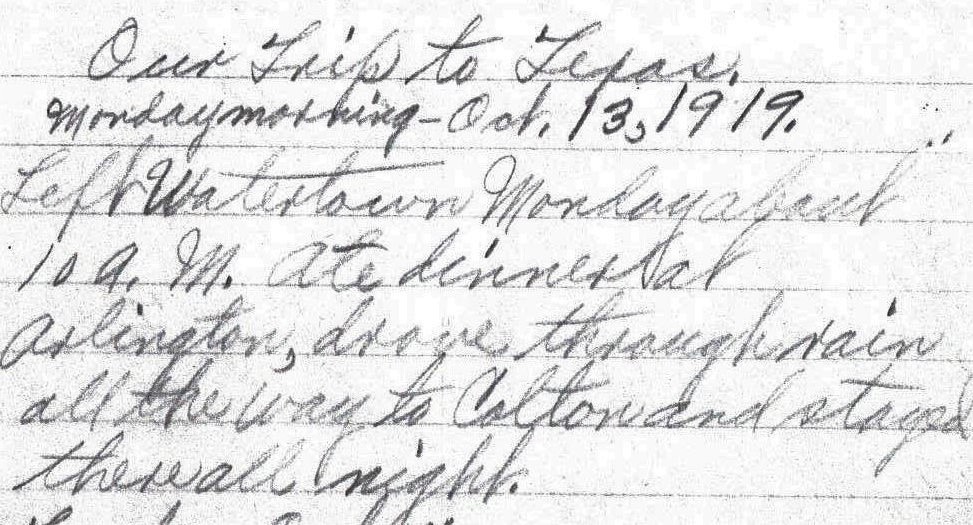 Our Trip to Texas.
Monday morning - Oct. 13, 1919.
Left Watertown Monday about
10 A. M. Ate dinner at
Arlington, drove through rain
all the way to Colton and stayed
there all night.